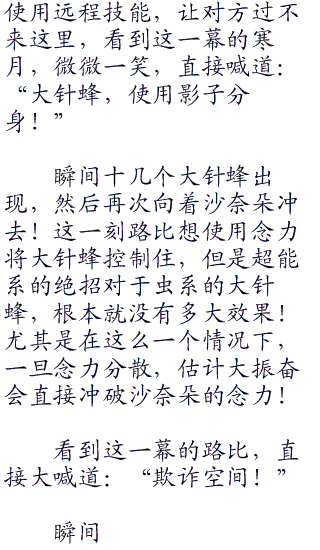 使用远程技能，让对方过不
来这里，看到这一幕的寒
月，微微一笑，直接喊道：
“大针蜂，使用影子分
身！”
瞬间十几个大针蜂出
现，然后再次向着沙奈朵冲
去！这一刻路比想使用念力
将大针蜂控制住，但是超能
系的绝招对于虫系的大针
蜂，根本就没有多大效果！
尤其是在这么一个情况下，
一旦念力分散，估计大振奋
会直接冲破沙奈朵的念力！
看到这一幕的路比，直
接大喊道：“欺诈空间！”
瞬间